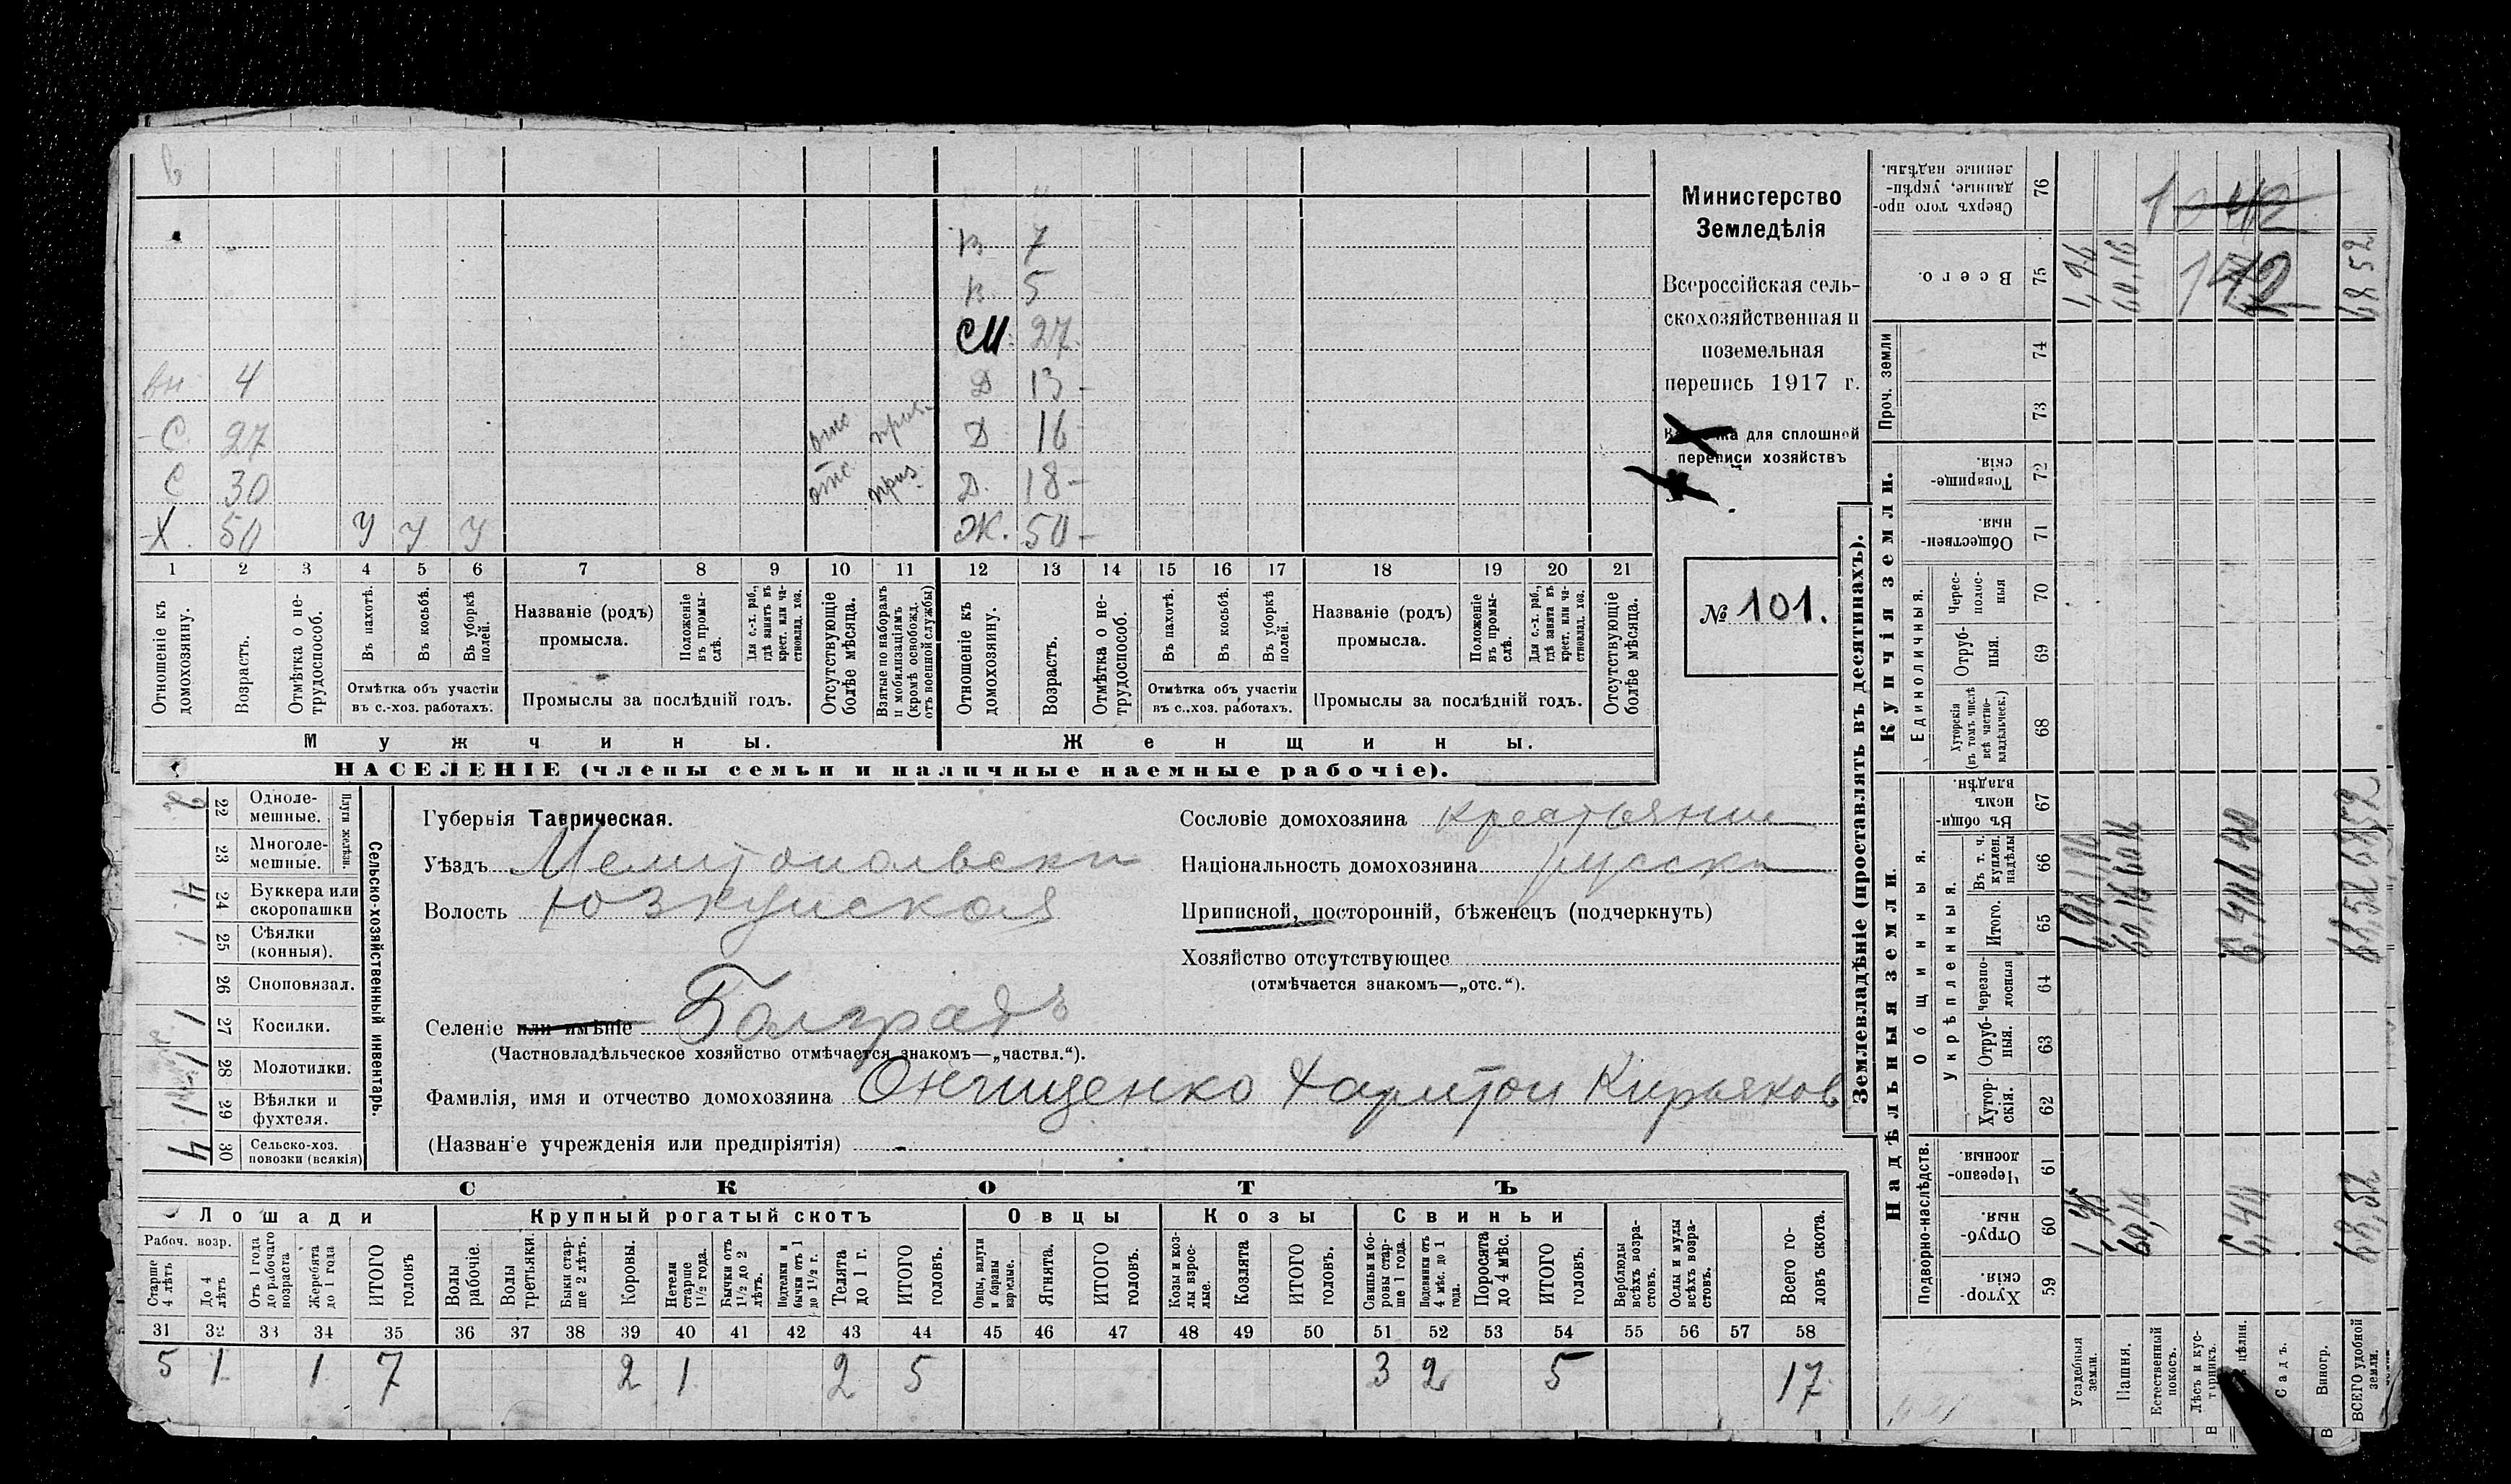 в
в 7
в 5
СМ. 27
вн 4 Д 13 -
С. 27 отс приз. Д 16
С 30 отс приз. Д. 18 -
Х. 50 У У У Ж. 50 -
1 2 3 4 5 6 7 8 9 10 11 12 13 14 15 16 17 18 19 20 21
Отношеніе къ домохозяину.
Возрастъ.
Отмѣтка о не-
трудоспособ.
Въ пахотѣ.
Въ косьбѣ.
Въ уборкѣ полей.
Отмѣтка объ участіи
въ с.-хоз. работахъ.
Названіе (родъ)
промысла.
Положеніе въ промы-
слѣ.
Для с.-х. раб.,
гдѣ занятъ въ
крест. или ча-
стновлад. хоз.
Промыслы за послѣдній годъ.
Отсутствующіе
болѣе мѣсяца.
Взятые по наборамъ
и мобилизаціямъ
(кромѣ освобожд.
отъ военной службы)
Отношеніе къ домохозяину.
Возрастъ.
Отмѣтка о не-
трудоспособ.
Въ пахотѣ.
Въ косьбѣ.
Въ уборкѣ полей.
Отмѣтка объ участіи
въ с..хоз. работахъ.
Названіе (родъ)
промысла.
Положеніе въ промы-
слѣ.
Для с.-х. раб.,
гдѣ занята въ
крест. или ча-
стновлад. хоз.
Промыслы за послѣдній годъ.
Отсутствующіе
болѣе мѣсяца.
Мужчины.
Женщины.
НАСЕЛЕНІЕ (члены семьи и наличные наемные рабочіе).
Министерство
Земледѣлія
Всероссійская сель-
скохозяйственная и
поземельная
перепись 1917 г.
для сплошной
переписи хозяйствъ
№ 101.
Сельско-хозяйственный инвентарь.
Плуги желѣзн.
22 Одноле-
мешные.
23 Многоле-
мешные.
4 24 Буккера или
скоропашки
1 25 Сѣялки
(конныя).
26 Сноповязал.
1 27 Косилки.
1 28 Молотилки.
1 29 Вѣялки и
фухтеля.
4 30 Сельско-хоз.
повозки (всякія)
Губернія Таврическая.
Уѣздъ Мелитопольски
Волость Юзкуиская
Селеніе или имѣніе Болградъ
(Частновладѣльческое хозяйство отмѣчается знакомъ—„частвл.“).
Фамилія, имя и отчество домохозяина Онищенко Харитон Кирьяков
(Названіе учрежденія или предпріятія) -
Сословіе домохозяина крестьянин
Національность домохозяина русски
Приписной, посторонній, бѣженецъ (подчеркнуть)
Хозяйство отсутствующее
(отмѣчается знакомъ—„отс.“).
СКОТЪ
Лошади
Крупный рогатый скотъ
Овцы
Козы
Свиньи
Рабоч. возр.
Старше
4 лѣтъ
До 4
лѣтъ
Отъ 1 года
до рабочаго
возраста
Жеребята
до 1 года
ИТОГО
головъ
Волы
рабочіе.
Волы
третьяки.
Быки стар-
ше 2 лѣтъ.
Коровы.
Нетели
старше
1½ года.
Бычки отъ
1½ до 2
лѣтъ.
Подтелки и
бычки отъ 1
до 1½ г.
Телята
до 1 г.
ИТОГО
головъ.
Овцы, валухи
и бараны
взрослые.
Ягнята.
ИТОГО
головъ.
Козы и коз-
лы взрос-
лые.
Козлята
ИТОГО
головъ.
Свиньи и бо-
ровы стар-
ше 1 года.
Подсвинки отъ
4 мѣс. до 1
года.
Поросята
до 4 мѣс.
ИТОГО
головъ.
Верблюды
всѣхъ возра-
стовъ.
Ослы и мулы
всѣхъ возра-
стовъ.
Всего го-
ловъ скота.
31 32 33 34 35 36 37 38 39 40 41 42 43 44 45 46 47 48 49 50 51 52 53 54 55 56 57 58
5 1 1 7 2 1 2 5 3 2 5 17
Землевладѣніе (проставлять въ десятинахъ).
Сверхъ того про-
данные, укрѣп-
ленные надѣлы.
76
Всего.
75 1,96 60,16 68 52
Проч. земли
74
73
Купчія земли.
Товарище-
скія.
72
Обществен-
ныя.
71
Единоличныя.
Черес-
полос-
ныя
70
Отруб-
ныя.
69
Хуторскія
(въ томъ числѣ
всѣ частно-
владѣльческ.)
68
Надѣльныя земли.
Общинныя.
Въ общин-
номъ
владѣн.
67
Укрѣпленныя.
Въ т. ч.
куплен.
надѣлы
66
Итого.
65
Черезпо-
лосныя
64
Отруб-
ныя.
63
Хутор-
скія.
62
Подворно-наслѣдств.
Черезпо-
лосныя.
61
Отруб-
ныя.
60 1,96 60,16 6,40 68,52
Хутор-
скія.
59
Усадебныя
земли.
Пашня.
Естественный
покосъ.
Лѣсъ и кус-
тарникъ.
цѣлин.
Садъ.
Виногр.
ВСЕГО удобной
земли.